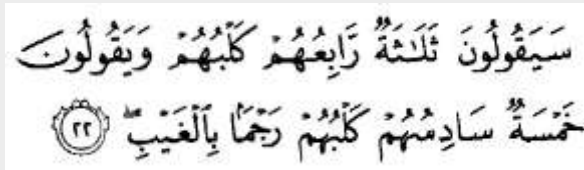 سَيَقُولُونَ ثَلَٰثَةٌ رَّابِعُهُمْ كَلْبُهُمْ وَيَقُولُونَ
خَمْسَةٌ سَادِسُهُمْ كَلْبُهُمْ رَجْمًا بِٱلْغَيْبِ ۖ ﴿٢٢﴾